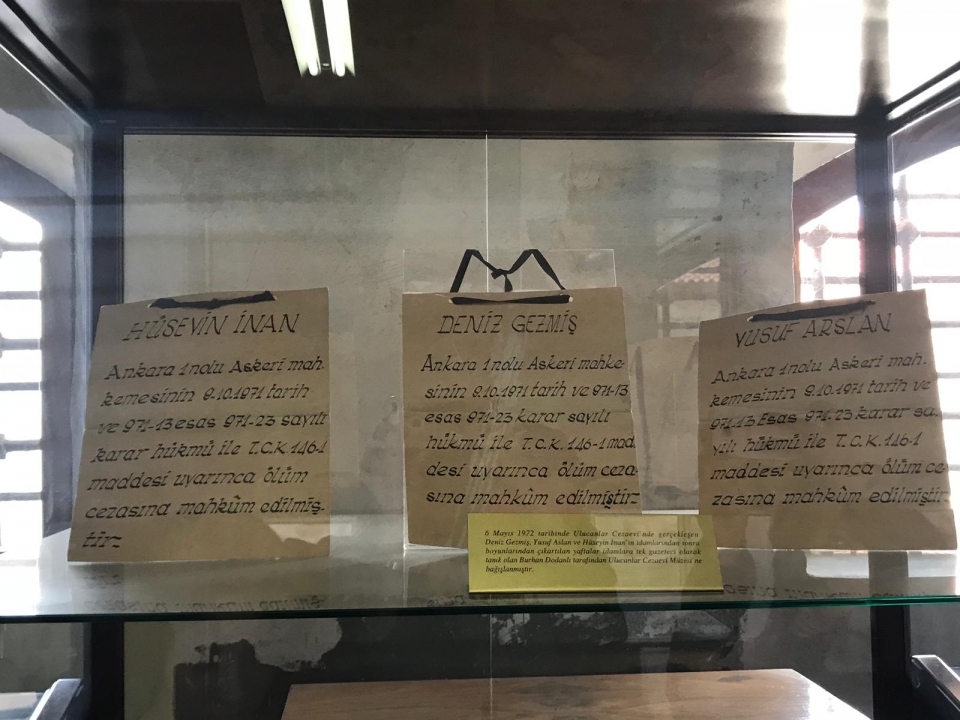 HÜSEYİN İNAN
Ankara 1 nolu Askeri mah-
kemesinin 9.10.1971 tarih
ve 971-13 esas 971-23 sayılı
karar hükmü ile T.C.K. 146-1
maddesi uyarınca ölüm
cezasına mahkûm edilmiş-
tir
DENİZ GEZMİŞ
Ankara 1 nolu Askeri mahke-
sinin 9.10.1971 tarih ve 971-13
esas 971-23 karar sayılı
hükmü ile T.C.K. 146-1 mad.
desi uyarınca ölüm ceza-
sına mahkûm edilmiştir
YUSUF ARSLAN
Ankara 1 nolu Askeri mah-
kemesinin 9.10.1971 tarih ve
971-13 Esas 971.23 karar sa.
yılı hükmü ile T.C.K. 146-1
maddesi uyarınca ölüm ce-
zasına mahkûm edilmiştir
6 Mayıs 1972 tarihinde Ulucanlar Cezaevi'nde gerçekleşen
Deniz Gezmiş, Yusuf Aslan ve Hüseyin İnan'ın idamlarından sonra
boyunlarından çıkartılan yaftalar idamlara tek gazeteci olarak
tanık olan Burhan Dodanlı tarafından Ulucanlar Cezaevi Müzesi'ne
bağışlanmıştır.